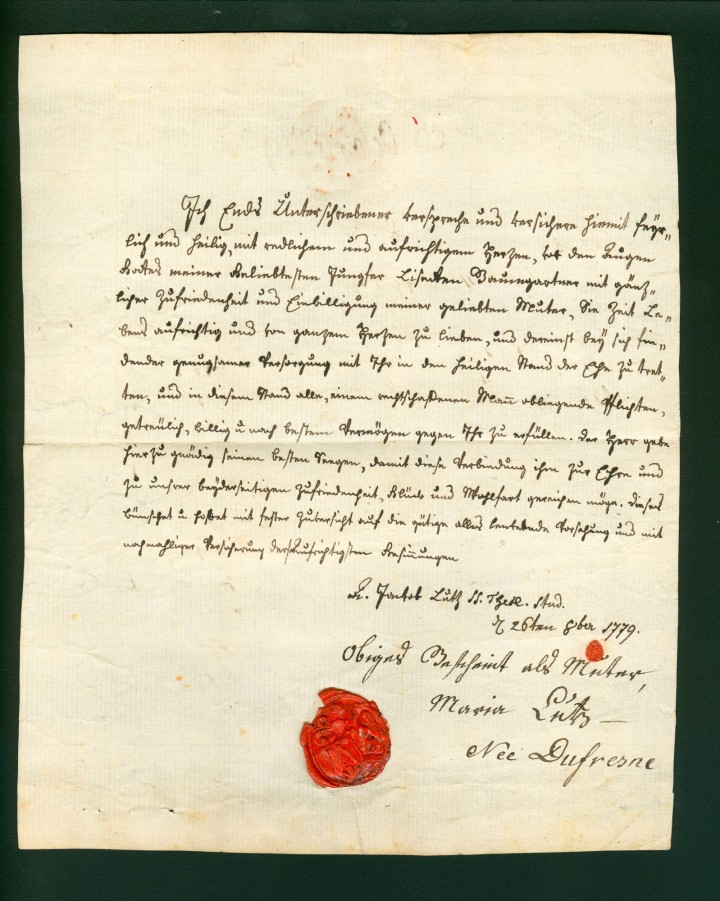 Ich Ends Unterschriebener verspreche und versichere hiemit feyr-
lich und heilig, mit redlichem und aufrichtigem Herzen, vor den Augen
Gottes meiner Geliebtesten Jungfer Lisetten Baumgartner mit gänz-
licher Zufriedenheit und Einwilligung meiner geliebten Muter, Sie Zeit Le-
bens aufrichtig und von ganzem Herzen zu lieben, und dereinst bey sich fin-
dender genugsamer Versorgung mit Ihr in den heiligen Stand der Ehe zu tret-
ten, und in diesem Stand alle, einem rechtschaffenen Mañ obliegende Pflichten,
getreülich, willig u nach bestem Vermögen gegen Ihr zu erfüllen. Der Herr gebe
hierzu gnädig seinen besten Seegen, damit diese Verbindung ihm zur Ehre und
zu unsrer beyderseitigen Zufriedenheit, Glück und Wohlfart gereichen möge. Dieses
wünschet u hoffet mit fester Zuversicht auf die gütige alles lenkende Vorsehung und mit
nochmahliger Versicherung der Aufrichtigsten Gesinnungen
Jacob Lutz SS. Theol. Stud.
26ten 8ber 1779.
Obiges Bescheint als Muter,
Maria Lütz
Neé Dufresne